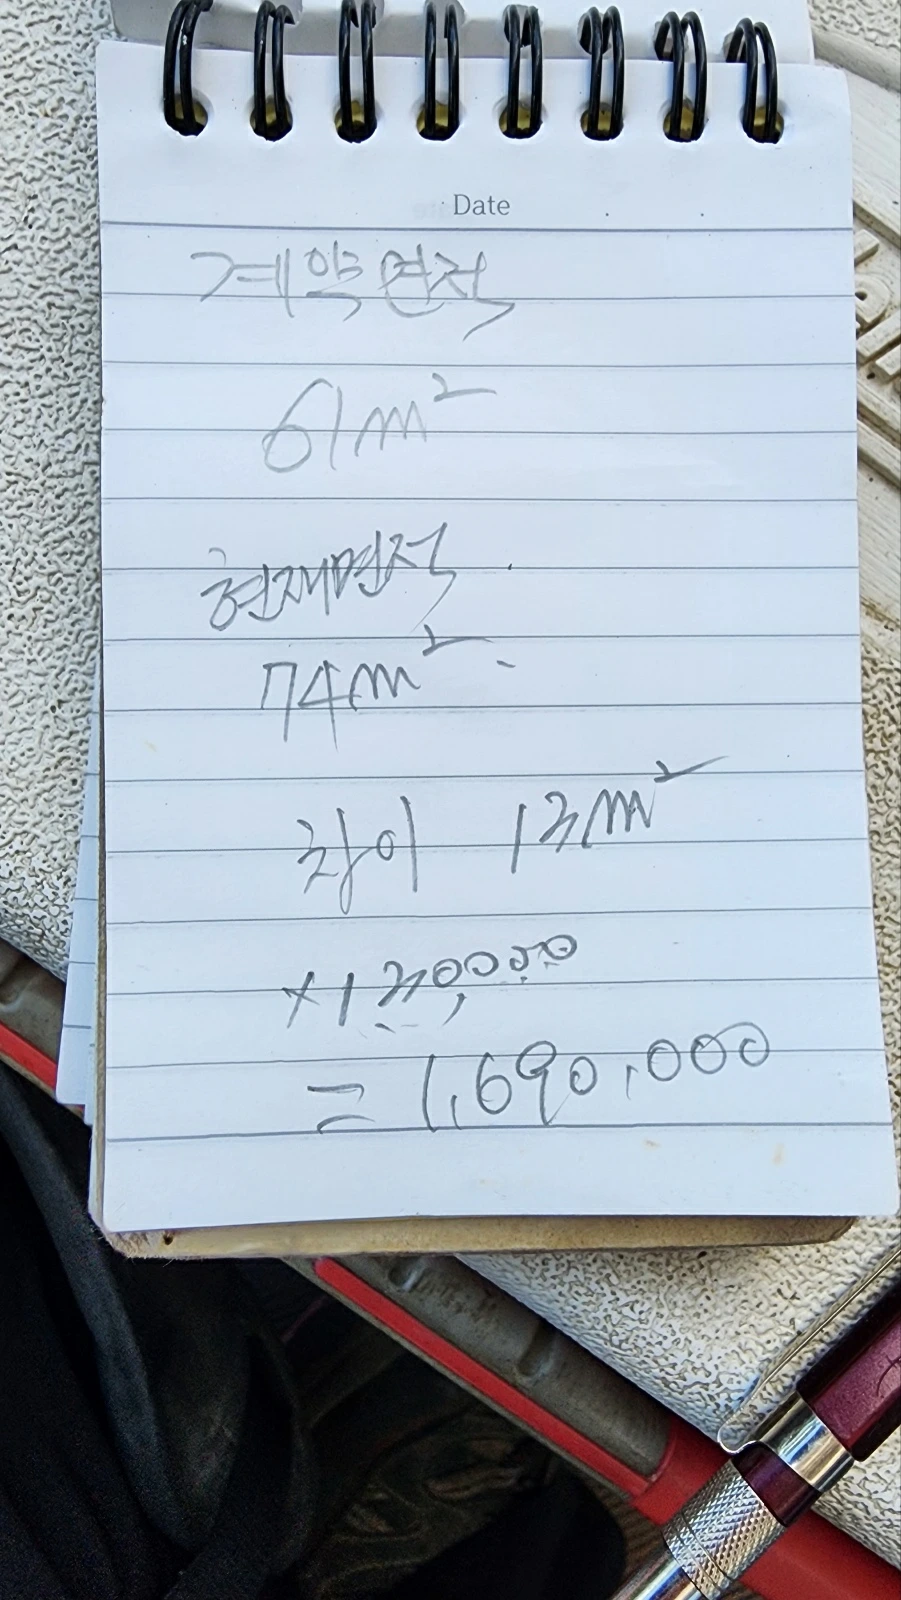 Date
계약면적
61m²
현재면적
74m²
차이 13m²
×130,000
= 1,690,000